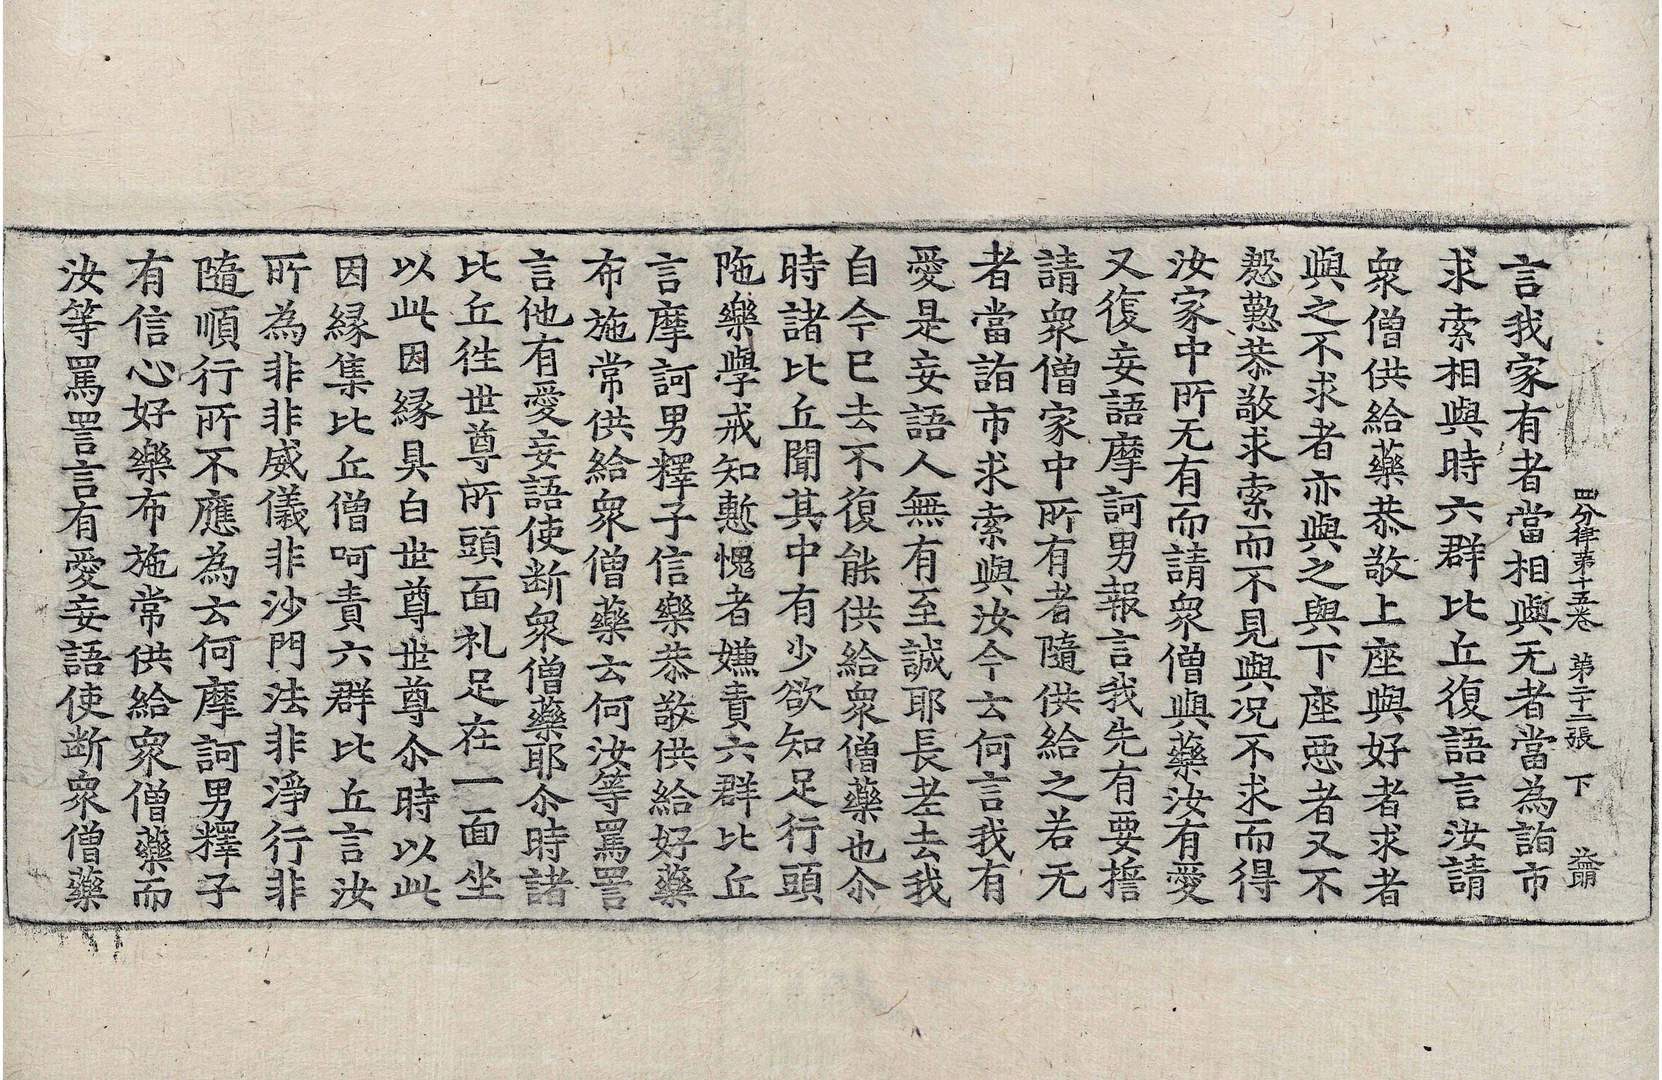 四分律第十五卷 第二十二張 下
言我家有者當相與无者當為詣市
求索相與時六群比丘復語言汝請
衆僧供給藥恭敬上座與好者求者
與之不求者亦與之與下座惡者又不
慇懃恭敬求索而不見與况不求而得
汝家中所无有而請衆僧與藥汝有愛
又復妄語摩訶男報言我先有要誓
請衆僧家中所有者隨供給之若无
者當詣市求索與汝今云何言我有
愛是妄語人無有至誠耶長老去我
自今已去不復能供給衆僧藥也尒
時諸比丘聞其中有少欲知足行頭
陁樂學戒知慙愧者嫌責六群比丘
言摩訶男釋子信樂恭敬供給好藥
布施常供給衆僧藥云何汝等罵詈
言他有愛妄語使断衆僧藥耶尒時諸
比丘徃世尊所頭面礼足在一面坐
以此因縁具白世尊世尊尒時以此
因縁集比丘僧呵責六群比丘言汝
所為非非威儀非沙門法非淨行非
隨順行所不應為云何摩訶男釋子
有信心好樂布施常供給衆僧藥而
汝等罵詈言有愛妄語使断衆僧藥